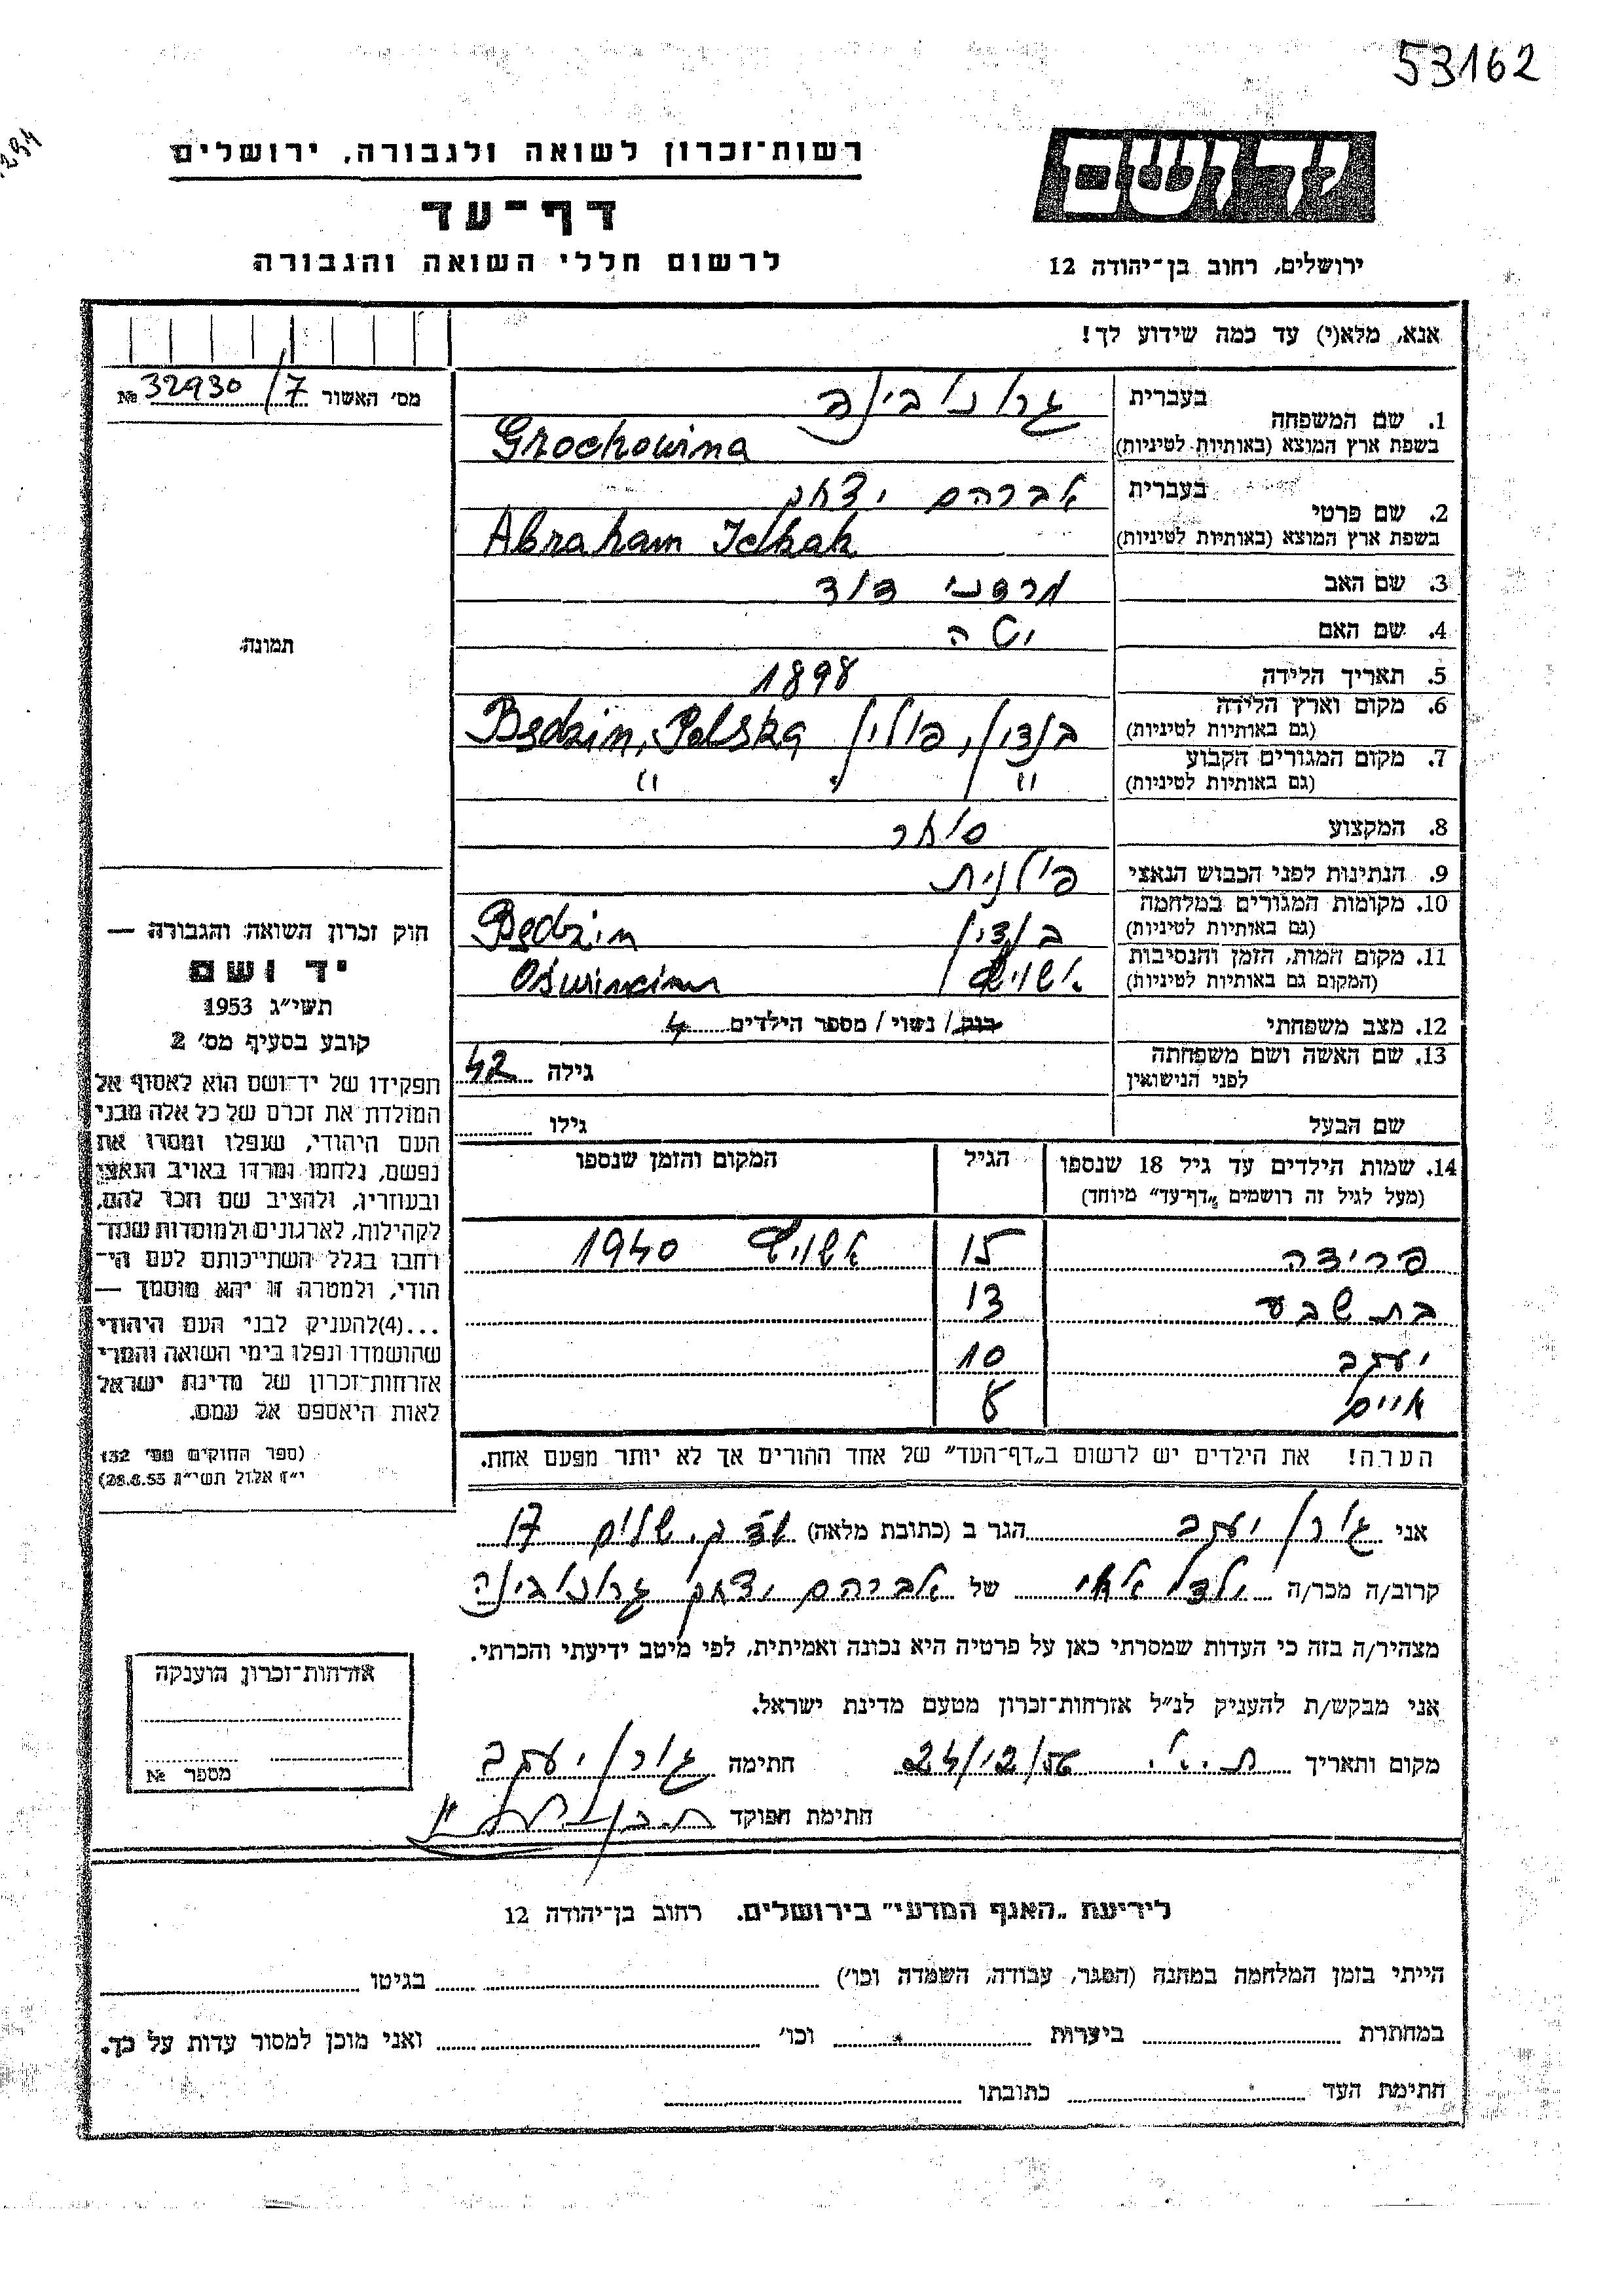 53162
רשות־זכרון לשואה ולגבורה, ירושלים
דף־עד
לרשום חללי השואה והגבורה
יד ושם
ירושלים, רחוב בן־יהודה 12
אנא, מלא(י) עד כמה שידוע לך!
מס׳ האשור 32930/7 №
תמונה
1. שם המשפחה
בעברית
בשפת ארץ המוצא (באותיות לטיניות) Grochowina
2. שם פרטי
בעברית אברהם יצחק
בשפת ארץ המוצא (באותיות לטיניות) Abraham Ichak
3. שם האב מרדכי דוד
4. שם האם
5. תאריך הלידה 1898
6. מקום וארץ הלידה בנדין, פולין Będzin, Polska
(גם באותיות לטיניות)
7. מקום המגורים הקבוע " "
(גם באותיות לטיניות)
8. המקצוע סוחר
9. הנתינות לפני הכבוש הנאצי פולנית
10. מקומות המגורים במלחמה בנדין Będzin
(גם באותיות לטיניות)
11. מקום המות, הזמן והנסיבות
(המקום גם באותיות לטיניות)
12. מצב משפחתי רווק / נשוי / מספר הילדים 4
13. שם האשה ושם משפחתה
לפני הנישואין
גילה 42
שם הבעל גילו
14. שמות הילדים עד גיל 18 שנספו הגיל המקום והזמן שנספו
(מעל לגיל זה רושמים „דף־עד״ מיוחד)
פרידה 15 1940
בת שבע 13
יעקב 10
חיים 8
הערה! את הילדים יש לרשום ב„דף־העד״ של אחד ההורים אך לא יותר מפעם אחת.
חוק זכרון השואה והגבורה —
יד ושם
תשי״ג 1953
קובע בסעיף מס׳ 2
תפקידו של יד־ושם הוא לאסוף אל
המולדת את זכרם של כל אלה מבני
העם היהודי, שנפלו ומסרו את
נפשם, נלחמו ומרדו באויב הנאצי
ובעוזריו, ולהציב שם וזכר להם,
לקהילות, לארגונים ולמוסדות שנח־
רבו בגלל השתייכותם לעם הי־
הודי, ולמטרה זו יהא מוסמך —
...(4)להעניק לבני העם היהודי
שהושמדו ונפלו בימי השואה והמרי
אזרחות־זכרון של מדינת ישראל
לאות היאספם אל עמם.
(ספר החוקים מס׳ 132
י״ז אלול תשי״ג 28.8.53)
אני גורן יעקב הגר ב (כתובת מלאה) 17
קרוב/ה מכר/ה של אברהם יצחק
מצהיר/ה בזה כי העדות שמסרתי כאן על פרטיה היא נכונה ואמיתית, לפי מיטב ידיעתי והכרתי.
אני מבקש/ת להעניק לנ״ל אזרחות־זכרון מטעם מדינת ישראל.
מקום ותאריך 24/12/56 חתימה גורן יעקב
חתימת הפוקד
אזרחות־זכרון הוענקה
מספר №
לידיעת „האגף המדעי״ בירושלים. רחוב בן־יהודה 12
הייתי בזמן המלחמה במחנה (הסגר, עבודה, השמדה וכו׳) בגיטו
במחתרת ביערות וכו׳ ואני מוכן למסור עדות על כך.
חתימת העד כתובתו